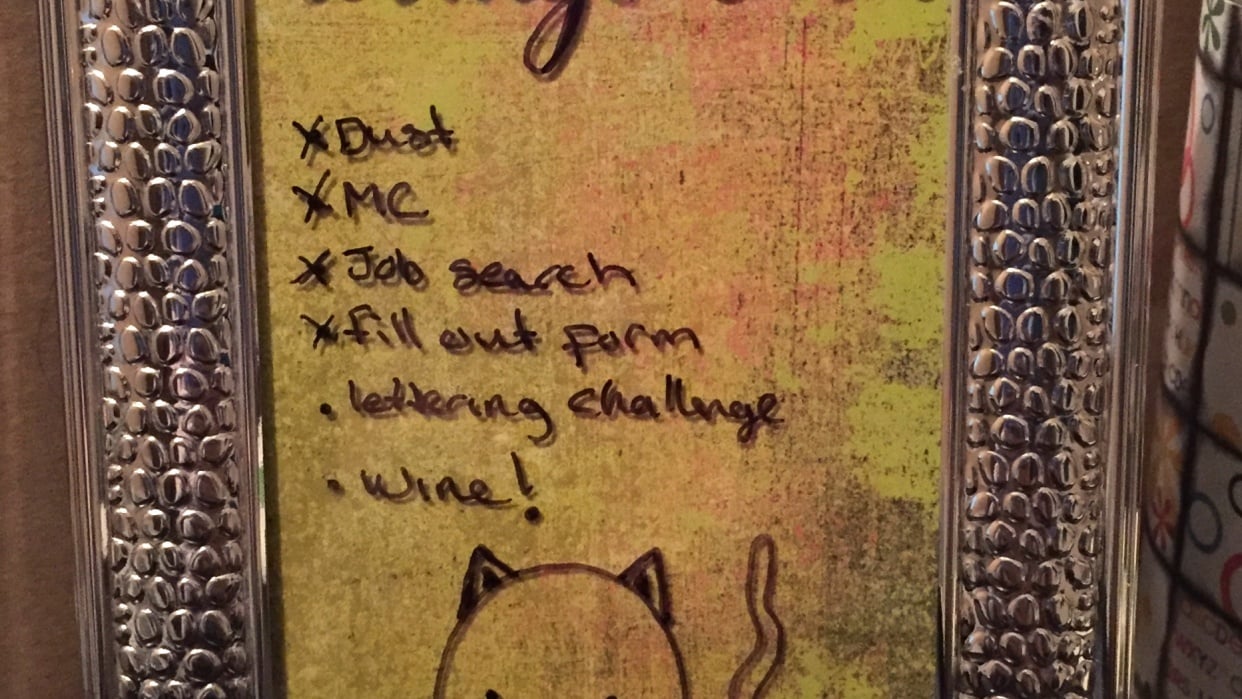 x Dust
x MC
x Job search
x fill out form
. lettering challenge
. wine!